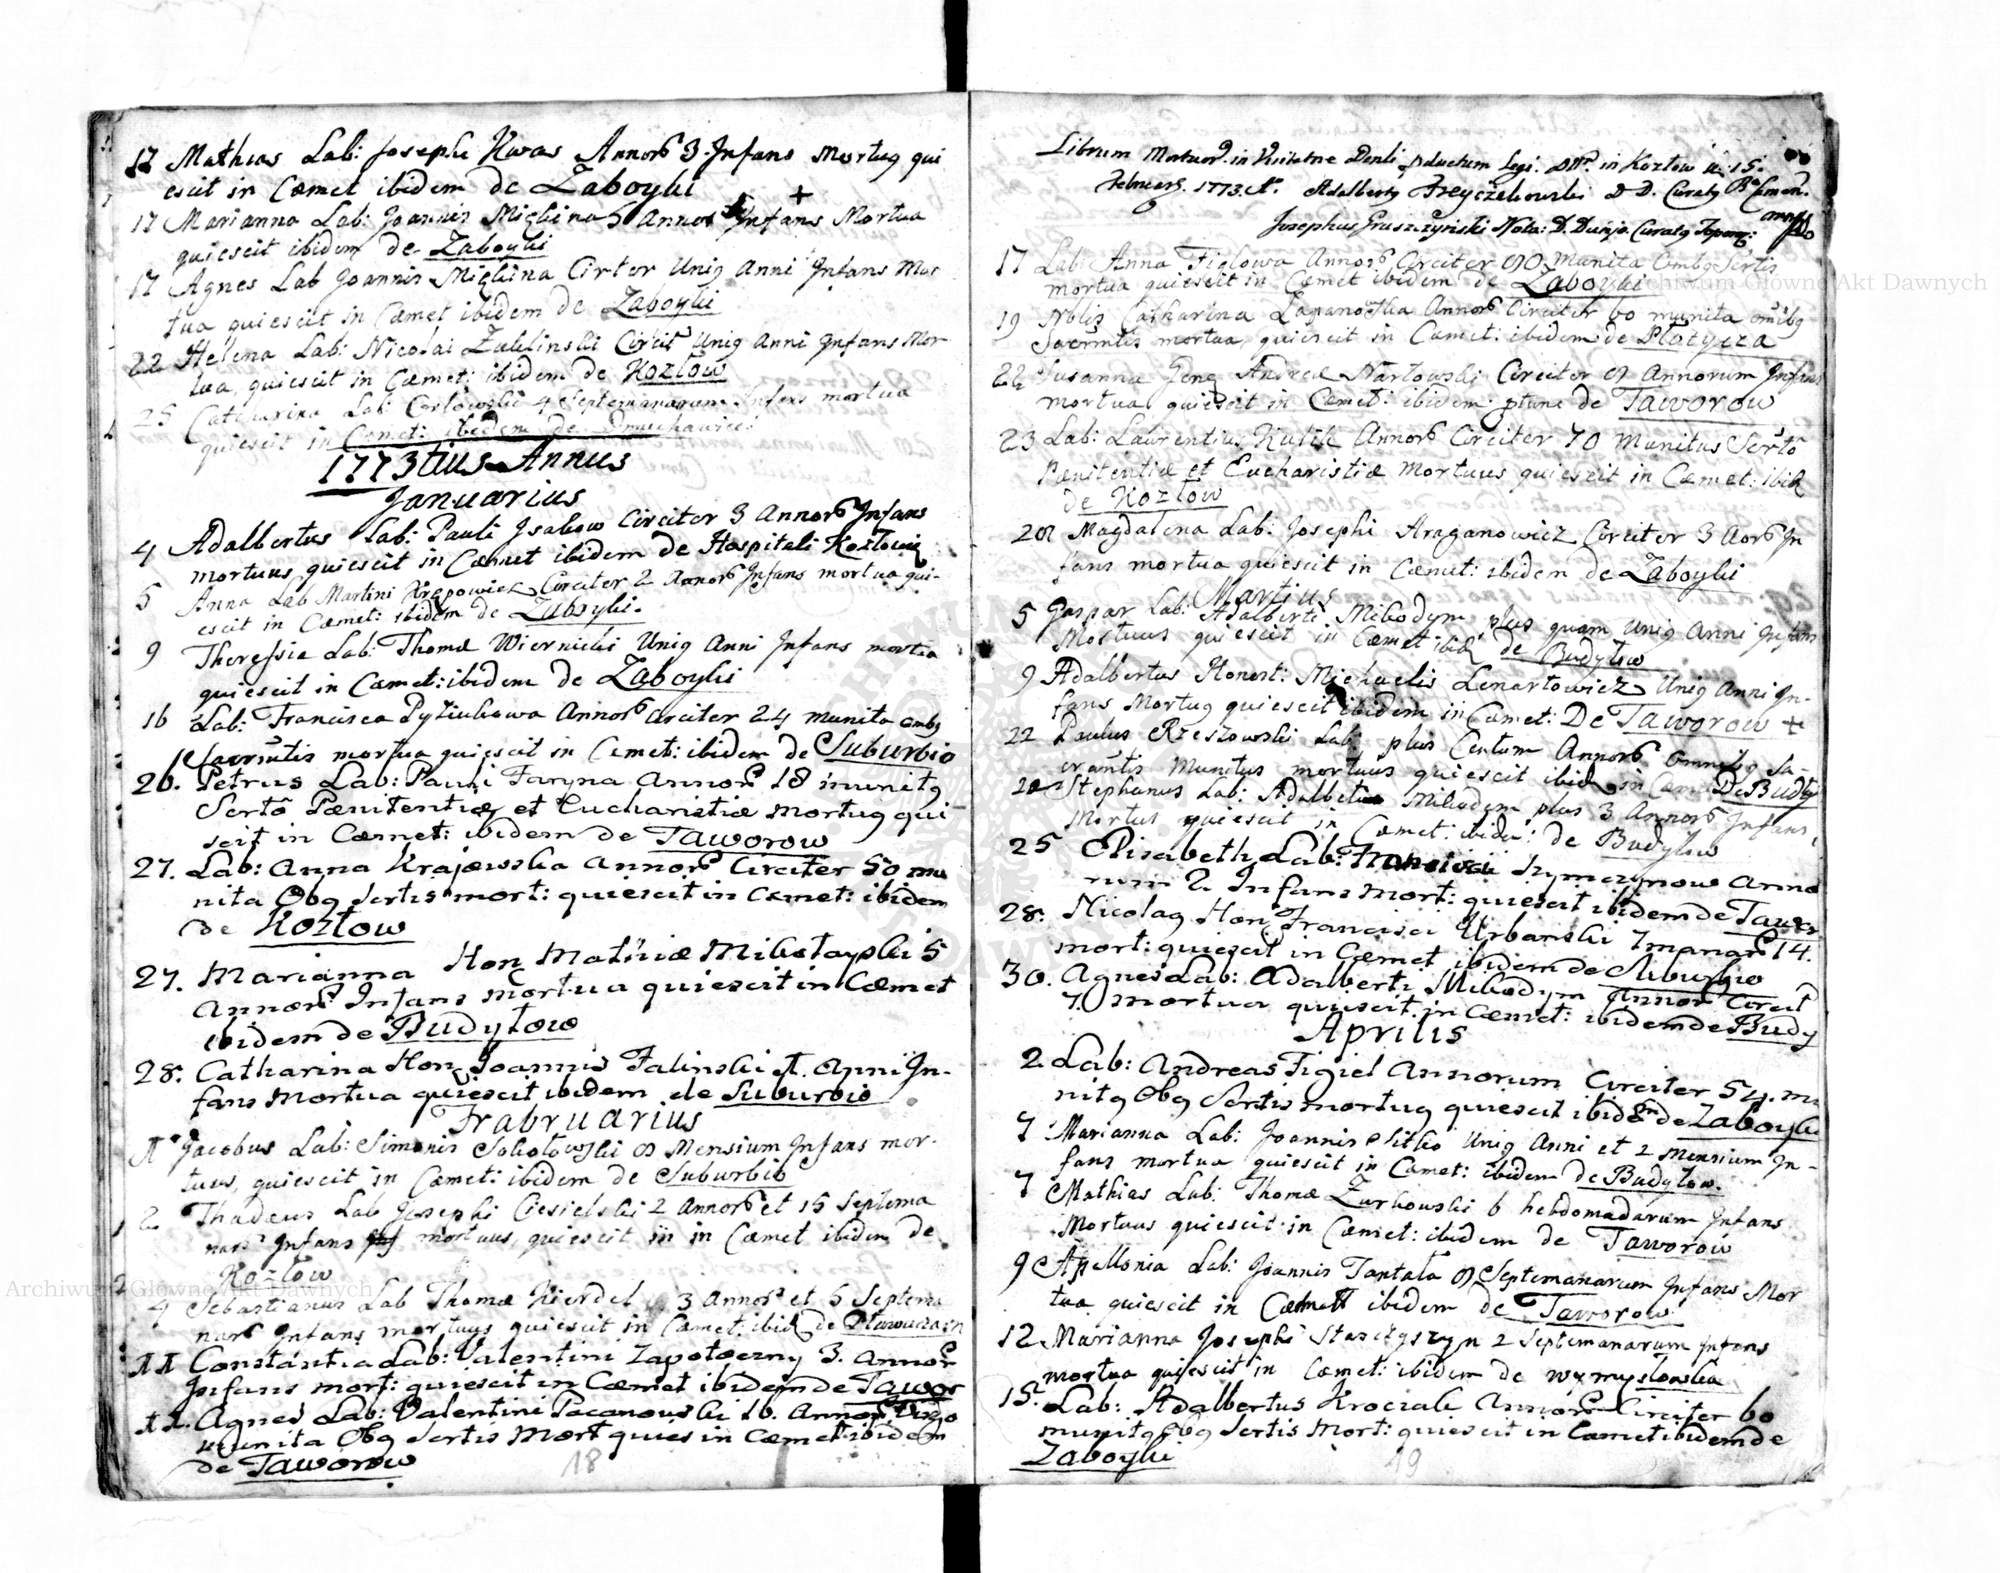 17 Mathias Lab: Josephi Kwas Annorũ 3. Infans Mortuq qui
escit in Cæmet ibidem de Zaboyki
17 Marianna Lab: Joannis Miękina 5 Annorũ Infans Mortua
quiescit ibidem de Zaboyki
17 Agnes Lab Joannis Miękina Cirter Uniq Anni Infans Mor
tua quiescit in Cæmet ibidem de Zaboyki
22 Helena Lab: Nicolai Zublinski Circit Uniq Anni Infans Mor
tua, quiescit in Cæmet: ibidem de Kozłow
25 Catharina Lab: 4 Septemanarum Infans mortua
quiescit in Cæmet: ibidem de
1773tius Annus
Januarius
4 Adalbertus Lab: Pauli Isakow Circiter 3 Annorũ Infans
mortuus quiescit in Cæmet ibidem de Hospitali
5 Anna Lab Martini Circiter 2 Annorũ Infans mortua qui-
escit in Cæmet: ibidem de Zaboyki.
9 Theressia Lab: Thomæ Wiernicki Uniq Anni Infans mortua
quiescit in Cæmet: ibidem de Zaboyki
16 Lab: Francisca Pyziukowa Annorũ circiter 24 munita ombq
Sacrm̃tis mortua quiescit in Cæmet: ibidem de Suburbio
26. Petrus Lab: Pauli Faryna Annorũ 18 munitq
Sertõ Pænitentiæ et Eucharistiæ mortuq qui-
scit in Cæmet: ibidem de Jaworow
27. Lab: Anna Krajewska Annorũ Circiter 50 mu
nita Obq Sertis mort: quiescit in Cæmet: ibidem
de Kozłow
27. Marianna Hon Mathiæ Mikołayski 5
Annorũ Infans mortua quiescit in Cæmet
ibidem de Budyłow
28. Catharina Hon Joannis Falinski 1. Anni In-
fans Mortua quiescit ibidem de Suburbio
Frabruarius
1 Jacobus Lab: Simonis Sokołowski 8 Mensium Infans mor-
tuus, quiescit in Cæmet: ibidem de Suburbio
2 Thadeus Lab Josephi Ciesielski 2 Annorũ et 15 Septema
narũ Infans mortuus, quiescit in in Cæmet ibidem de
Kozłow
4 Sebastianus Lab Thomæ Kierdel 3 Annorũ et 5 Septema
narũ Infans mortuus quiescit in Cæmet: ibid de
11 Constantia Lab: Valentini Zapotoczny 3. Annorũ
Infans mort: quiescit in Cæmet ibidem de Jawor
11. Agnes Lab: Valentini Pacanowski 16. Annorũ Virgo
munita Obq Sertis Mort quies in Cæmet ibidem
de Jaworow
18
Librum Mortuorũ in Visitatne Denli Legi. in Kozłow d: 15.
Februarij. 1773. Aº. Adalberty D D. Curaty
Josephus Gruszczyński Nota: D. Curaty
17 Lab: Anna Figlowa Annorũ Circiter 80 Munita Ombq Sertis
mortua quiescit in Cæmet ibidem de Zaboyki
19 Nobiq Catharina Łapanowska Annorũ Circiter 60 munita omibq
Sacrm̃tis mortua, quiescit in Cæmet: ibidem de Płotycza
22 Susanna Genq Andreæ Nartowski Circiter 8 Annorum Infans
mortua, quiescit in Cæmet: ibidem ptunc de Jaworow
23 Lab: Laurentius Kulik Annorũ Circiter 70 Munitus Sertõ
Pænitentiæ et Eucharistiæ Mortuus quiescit in Cæmet: ibid
de Kozłow
28 Magdalena Lab: Josephi Araganowicz Circiter 3 Aorũ In
fans mortua quiescit in Cæmet: ibidem de Zaboyki
Martius
5 Gaspar Lab: Adalberti Mikodym plus quam Uniq Anni Infans
Mortuus quiescit in Cæmet ibid de Budyłow
9 Adalbertus Honest: Michaelis Lenartowicz Uniq Anni In-
fans Mortuq quiescit ibidem in Cæmet: De Jaworow +
22 Paulus Rzeszowski Lab plus Centum Annorũ Omnibq Sa-
crantis Munitus mortuus quiescit ibid in Cæm De Budy
22 Stephanus Lab: Adalberti Mikodem plus 3 Annorũ Infans,
Mortus quiescit in Cæmet: ibidem: de Budyłow
25 Elisabeth Lab: Francisci Szymczynow Anno
rum 2. Infans Mort: quiescit ibidem de Jawor
28. Nicolaq Hon Francisci Urbanski Impnarũ 14.
mort: quiescit in Cæmet ibidem de Suburbio
30. Agnes Lab: Adalberti Mikodym Annorũ Circit
7. mortua quiescit in Cæmet: ibidem de Budy
Aprilis
2. Lab: Andreas Figiel Annorum Circiter 54. mu
nitq Obq Sertis mortuq quiescit ibidem de Zaboyki
7 Marianna Lab: Joannis Sitko Uniq Anni et 2 Mensium In-
fans mortua quiescit in Cæmet: ibidem de Budyłow.
7 Mathias Lab: Thomæ Zurkowski 6 hebdomadarum Infans
Mortuus quiescit in Cæmet: ibidem de Jaworow
9 Apellonia Lab: Joannis Tantała 8 Septemanarum Infans Mor
tua quiescit in Cæmet ibidem de Jaworow
12 Marianna Josephi Starczyszyn 2 Septemanarum Infans
mortua quiescit in Cæmet: ibidem de Wymysłowka
15. Lab: Adalbertus Kroczak Annorũ Circiter 60
munitq Obq Sertis Mort: quiescit in Cæmet ibidem de
Zaboyki
19
Archiwum Główne Akt Dawnych
Archiwum Główne Akt Dawnych